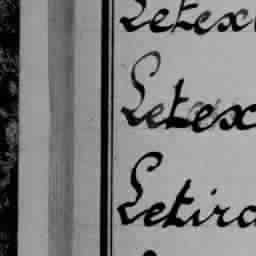 Letex
Letex
Letira